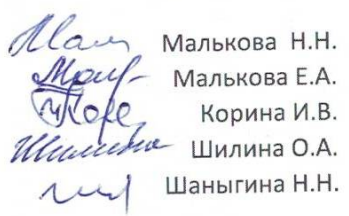 Малькова Н.Н.
Малькова Е.А.
Корина И.В.
Шилина Шилина О.А.
Шаныгина Н.Н.